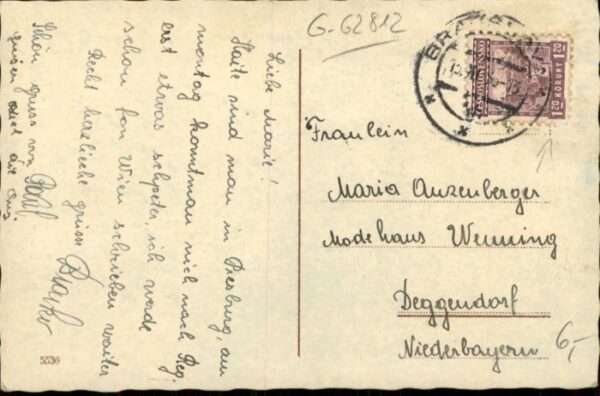 G-62812
Liebe Marie!
Haite sind man in Presburg, am
montag komtman mich nach Reg.
erst etwas schpeter, ich werde
schon fon Wien schrieben waiter
Recht herzliche grüsse
Schön gruss von
BRATISLAVA
1.20
Fraulein
Maria Anzenberger
Modehaus Wenning
Deggendorf
Niederbayern
6,-